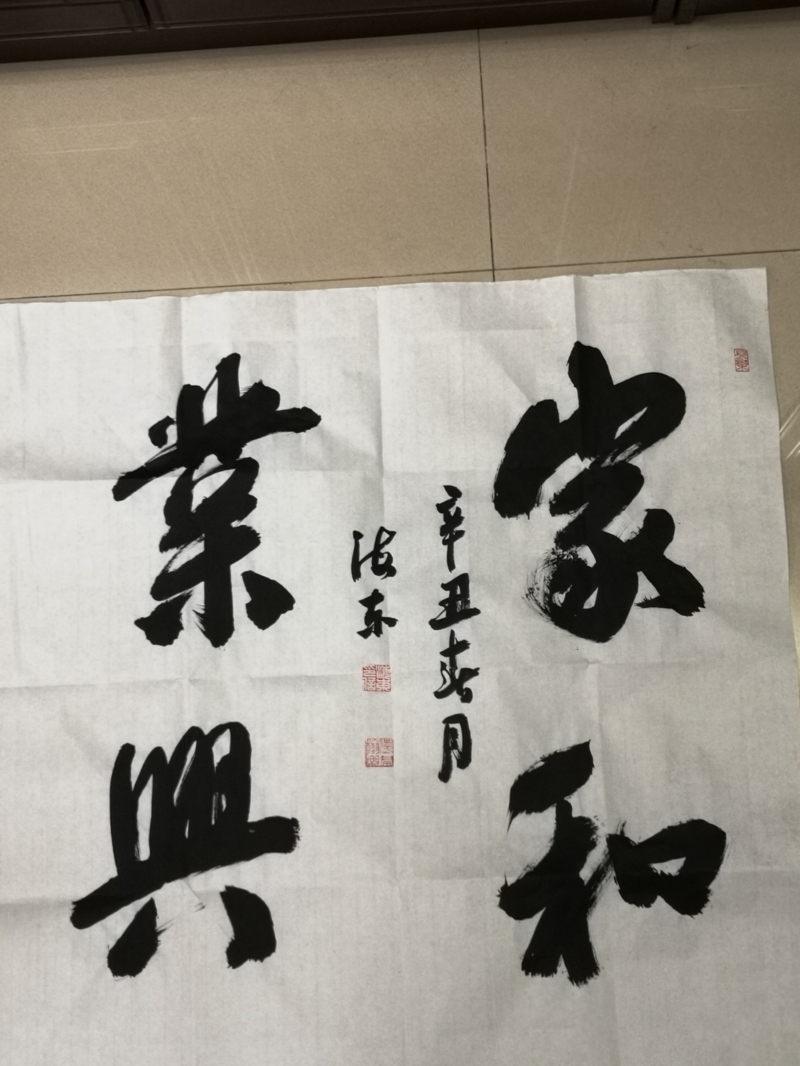 家和
辛丑春月
海东
業興